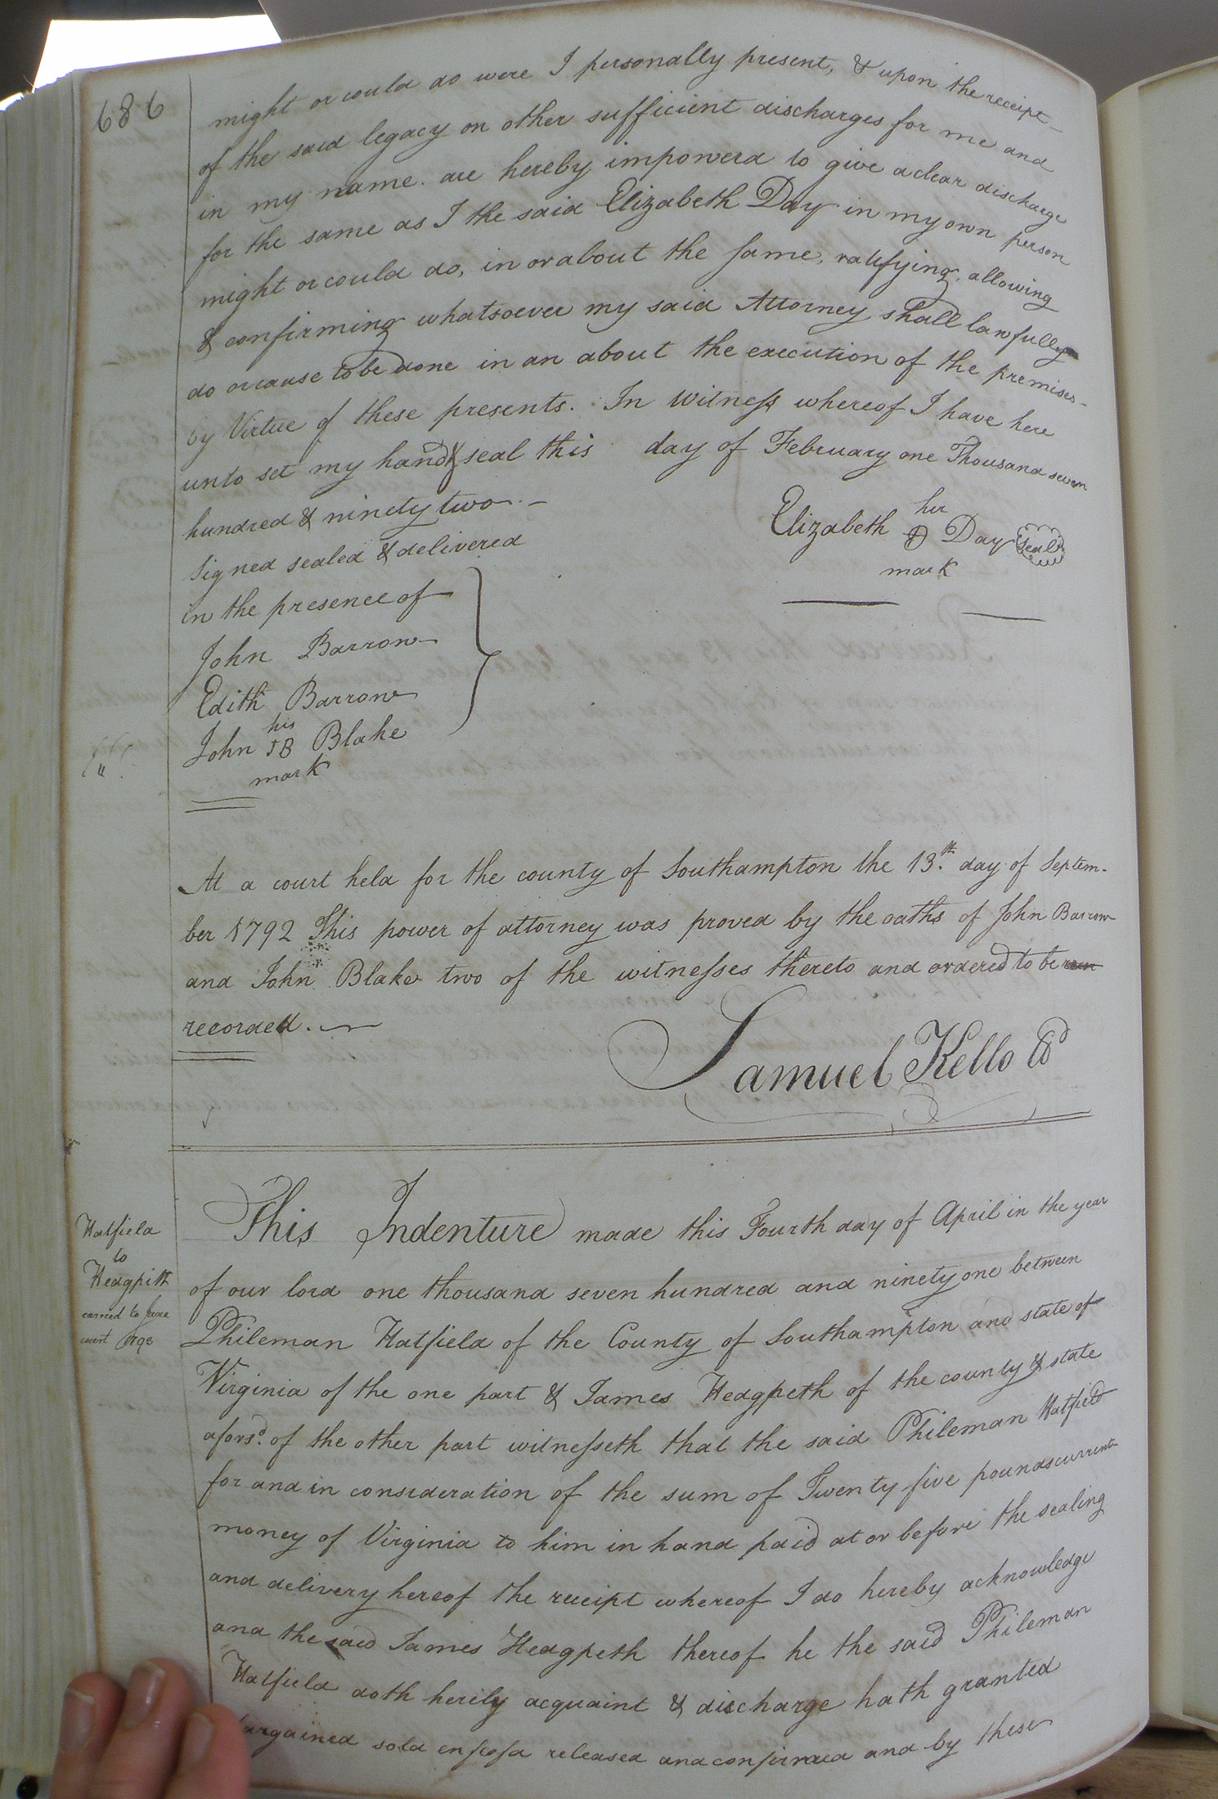 686
might or could do were I personally present, & upon the receipt
of the said legacy on other sufficient discharges for me and
in my name. are hereby impowerd to give a clear discharge
for the same as I the said Elizabeth Day in my own person
might or could do, in or about the same, ratifying, allowing
& confirming whatsoever my said Attorney shall lawfully
do or cause to be done in an about the execution of the premises
by Virtue of these presents. In Witness whereof I have here
unto set my hand & seal this day of February one Thousand seven
hundred & ninety two
Signed sealed & delivered
in the presence of
John Barrow
Edith Barrow
his
John JB Blake
mark
her
Elizabeth Day seal
mark
At a court held for the county of Southampton the 13.th day of Septem-
ber 1792 This power of attorney was proved by the oaths of John Barrow
and John Blake two of the witnesses thereto and ordered to be
recorded.
Samuel Kello
Hatfield
to
Hedgpith
This Indenture made this Fourth day of April in the year
of our lord one thousand seven hundred and ninety one between
Phileman Hatfield of the County of Southampton and state of
Virginia of the one part & James Hedgpeth of the county & state
aforsd. of the other part witnesseth that the said Phileman Hatfield
for and in consideration of the sum of Twenty five pounds current
money of Virginia to him in hand paid at or before the sealing
and delivery hereof the receipt whereof I do hereby acknowledge
and the said James Hedgpeth thereof he the said Phileman
Hatfield doth herily acquaint & discharge hath granted
bargained sold enfeofd released and confirmed and by these